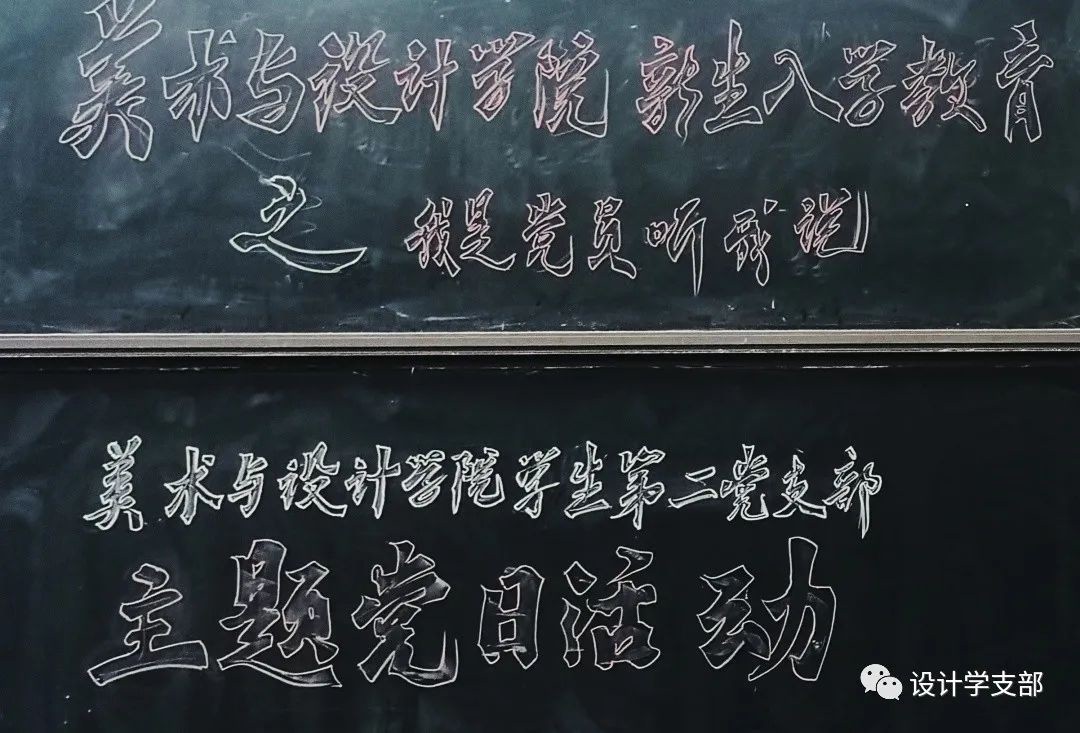 美术与设计学院 新生入学教育
之 我是党员听我说
美术与设计学院学生第二党支部
主题党日活动
设计学支部